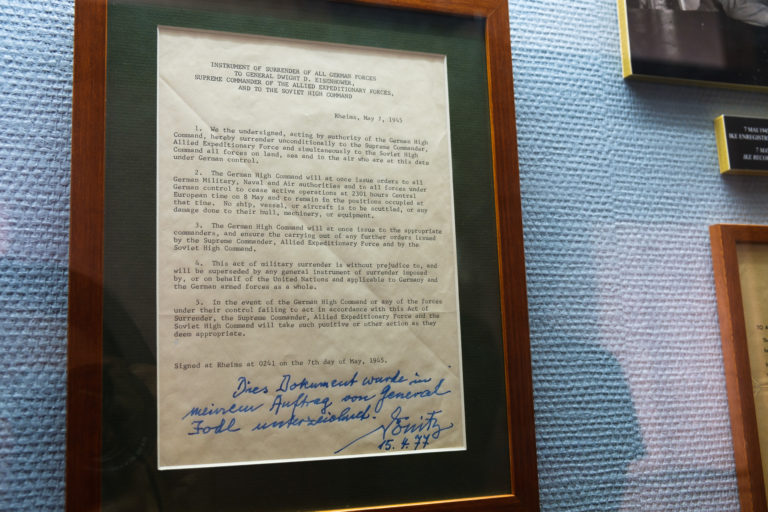 INSTRUMENT OF SURRENDER OF ALL GERMAN FORCES
TO GENERAL DWIGHT D. EISENHOWER,
SUPREME COMMANDER OF THE ALLIED EXPEDITIONARY FORCES,
AND TO THE SOVIET HIGH COMMAND
Rheims, May 7, 1945
1. We the undersigned, acting by authority of the German High
Command, hereby surrender unconditionally to the Supreme Commander,
Allied Expeditionary Force and simultaneously to the Soviet High
Command all forces on land, sea and in the air who are at this date
under German control.
2. The German High Command will at once issue orders to all
German Military, Naval and Air authorities and to all forces under
German control to cease active operations at 2301 hours Central
European time on 8 May and to remain in the positions occupied at
that time. No ship, vessel, or aircraft is to be scuttled, or any
damage done to their hull, machinery, or equipment.
3. The German High Command will at once issue to the appropriate
commanders, and ensure the carrying out of any further orders issued
by the Supreme Commander, Allied Expeditionary Force and by the
Soviet High Command.
4. This act of military surrender is without prejudice to, and
will be superseded by any general instrument of surrender imposed
by, or on behalf of the United Nations and applicable to Germany and
the German armed forces as a whole.
5. In the event of the German High Command or any of the forces
under their control failing to act in accordance with this Act of
Surrender, the Supreme Commander, Allied Expeditionary Force and the
Soviet High Command will take such punitive or other action as they
deem appropriate.
Signed at Rheims at 0241 on the 7th day of May, 1945.
Dies Dokument wurde in
meinem Auftrag von General
Jodl unterzeichnet.
Dönitz
15.4.77
7 MAI 194
IKE ENREGIST
7 MA
IKE RECO
TO A